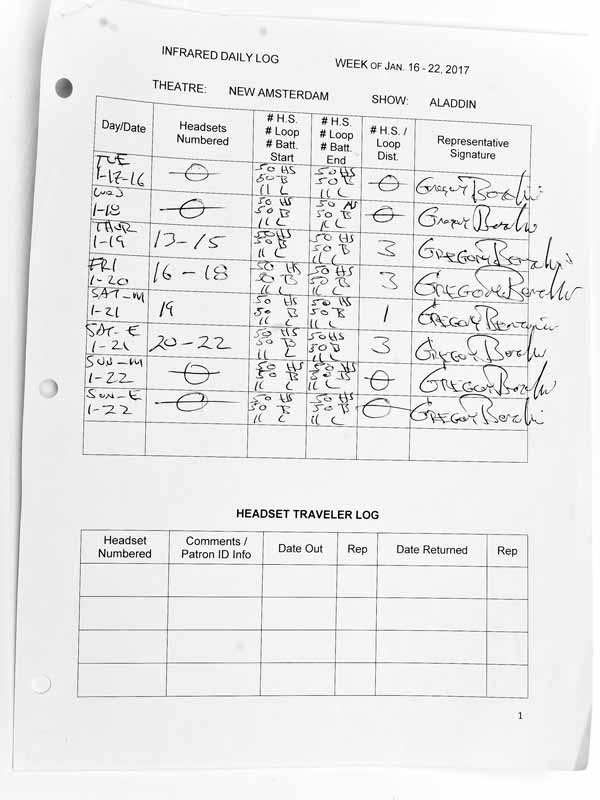 INFRARED DAILY LOG WEEK OF JAN. 16 - 22, 2017
THEATRE: NEW AMSTERDAM SHOW: ALADDIN
Day/Date
Headsets
Numbered
# H.S.
# Loop
# Batt.
Start
# H.S.
# Loop
# Batt.
End
# H.S. /
Loop
Dist.
Representative
Signature
TUE
1-17-16
0
50 HS
50 B
11 L
50 HS
50 B
11 L
0
Gregory
WED
1-18
0
50 HS
50 B
11 L
50 HS
50 B
11 L
0
Gregory
THUR
1-19
13-15
50 HS
50 B
11 L
50 HS
50 B
11 L
3
GREGORY
FRI
1-20
16-18
50 HS
50 B
11 L
50 HS
50 B
11 L
3
GREGORY
SAT-M
1-21
19
50 HS
50 B
11 L
50 HS
50 B
11 L
1
GREGORY
SAT-E
1-21
20-22
50 HS
50 B
11 L
50 HS
50 B
11 L
3
GREGORY
SUN-M
1-22
0
50 HS
50 B
11 L
50 HS
50 B
11 L
0
GREGORY
SUN-E
1-22
0
50 HS
50 B
11 L
50 HS
50 B
11 L
0
GREGORY
HEADSET TRAVELER LOG
Headset
Numbered
Comments /
Patron ID Info
Date Out
Rep
Date Returned
Rep
1